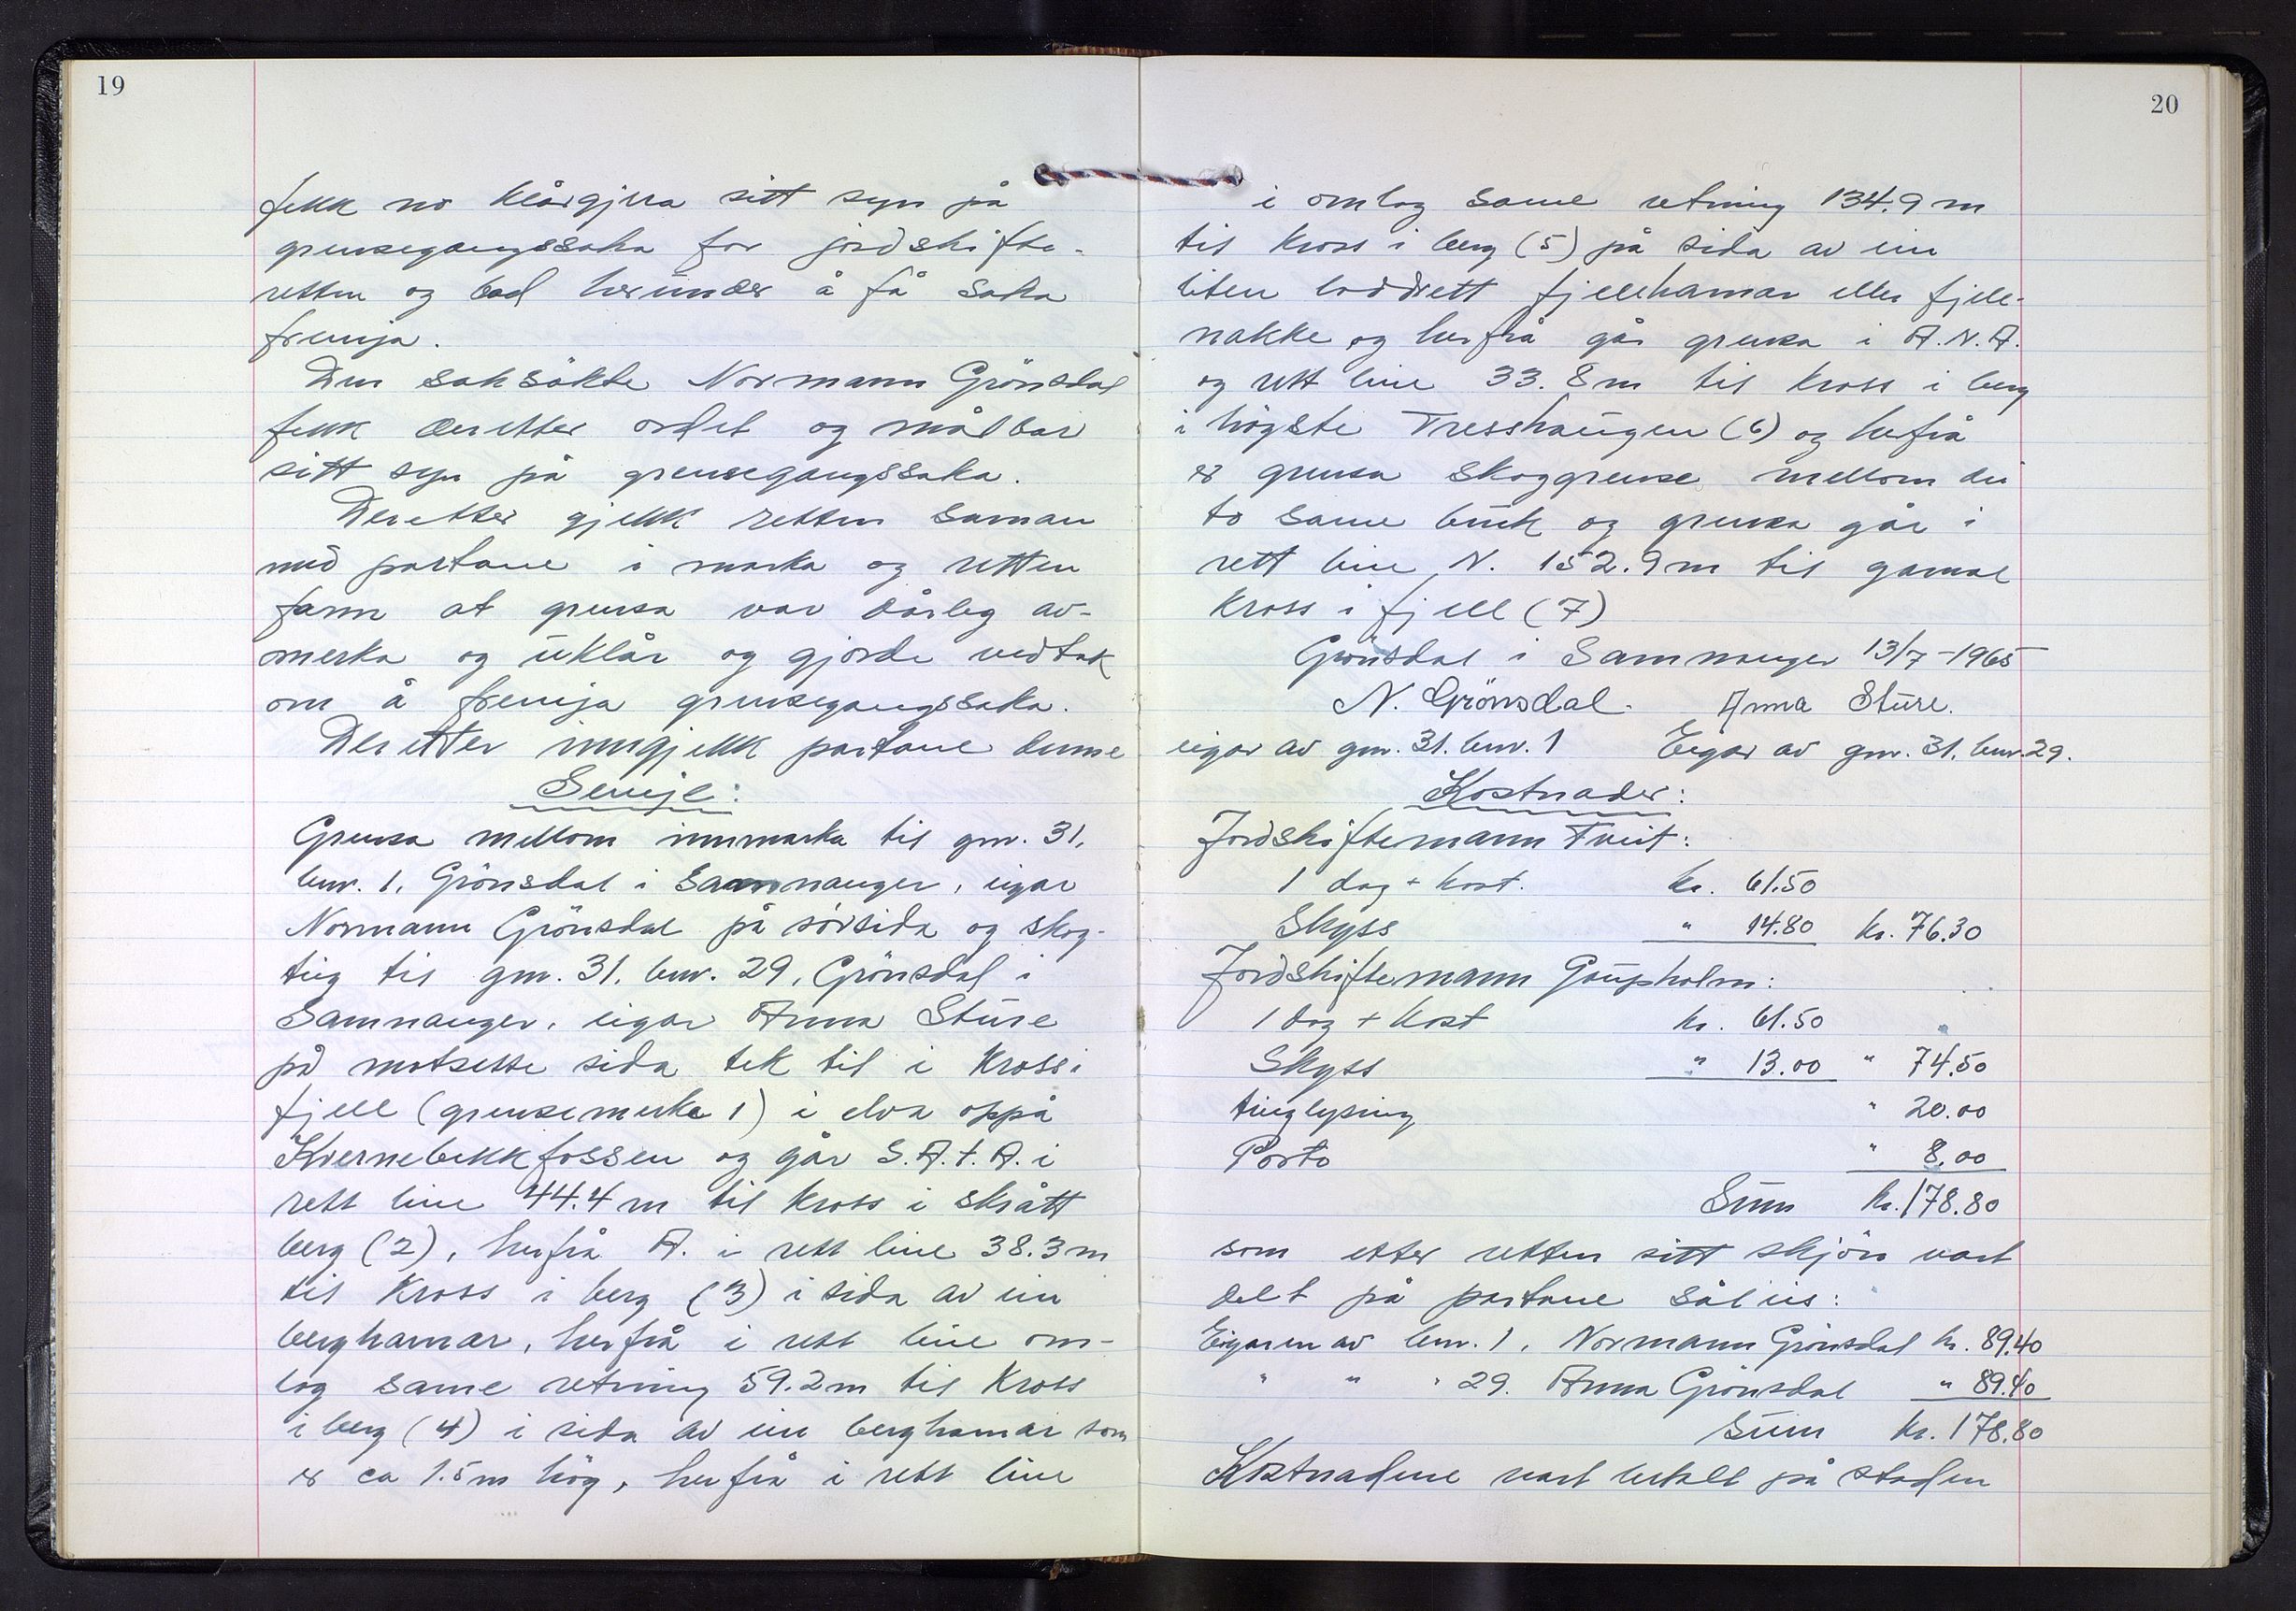 19
fekk no klårgjera sitt syn på
grensegangssaka for jordskifte-
retten og bad herunder å få saka
fremja.
Den saksökte Normann Grönsdal
fekk deretter ordet og målbar
sitt syn på grensegangssaka.
Deretter gjekk retten saman
med partane i marka og retten
fann at grensa var dårleg av-
merka og uklår og gjorde vedtak
om å fremja grensegangssaka.
Deretter inngjekk partane denne
Semje:
Grensa mellom innmarka til gnr. 31,
bnr. 1, Grönsdal i Samnanger, eigar
Normann Grönsdal på sörsida og skog-
teig til gnr. 31, bnr. 29, Grönsdal i
Samnanger, eigar Anna Sture
på motsette sida tek til i kross i
fjell (grensemerke 1) i elva oppå
Kvernebekkfossen og går S.A.t.A. i
rett line 44.4 m til kross i skrått
berg (2), herfrå A. i rett line 38.3 m
til kross i berg (3) i sida av ein
berghamar, herfrå i rett line om-
lag same retning 59.2 m til kross
i berg (4) i sida av ein berghamar som
er ca 1.5 m høg, herfrå i rett line
20
i omlag same retning 134.9 m
til kross i berg (5) på sida av ein
liten loddrett fjellhamar eller fjell-
nakke og herfrå går grensa i A.N.A.
og rett line 33.8 m til kross i berg
i høgste Tresshaugen (6) og herfrå
er grensa skoggrense mellom dei
to same bruk og grensa går i
rett line N. 152.9 m til gamal
kross i fjell (7)
Grönsdal i Samnanger 13/7-1965
N. Grönsdal. Anna Sture.
eigar av gnr. 31. bnr. 1 Eigar av gnr. 31. bnr. 29.
Kostnader:
Jordskiftemann Tveit:
1 dag + kost. kr. 61.50
Skyss " 14.80 kr. 76.30
Jordskiftemann Gaupholm:
1 dag + kost kr. 61.50
Skyss " 13.00 " 74.50
tinglysing " 20.00
Porto " 8.00
Sum kr. 178.80
som etter retten sitt skjön vart
delt på partane såleis:
Eigaren av bnr. 1, Normann Grönsdal kr. 89.40
" " " 29. Anna Grönsdal " 89.40
Sum kr. 178.80
Kostnadene vart betalt på staden